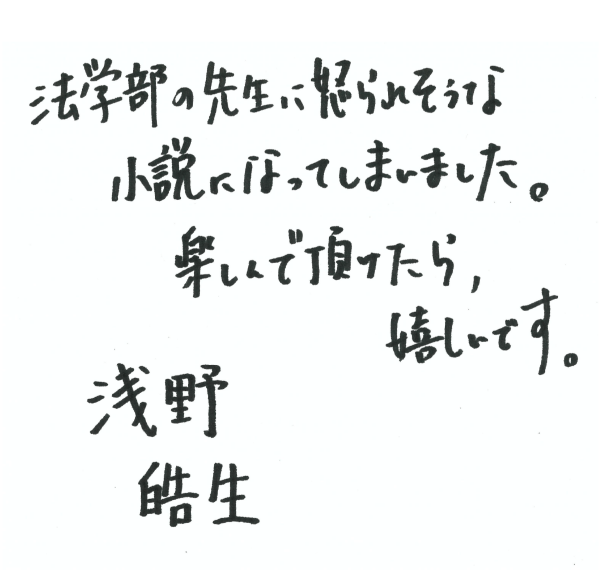 法学部の先生に怒られそうな
小説になってしまいました。
楽しんで頂けたら,
嬉しいです。
浅野
皓生